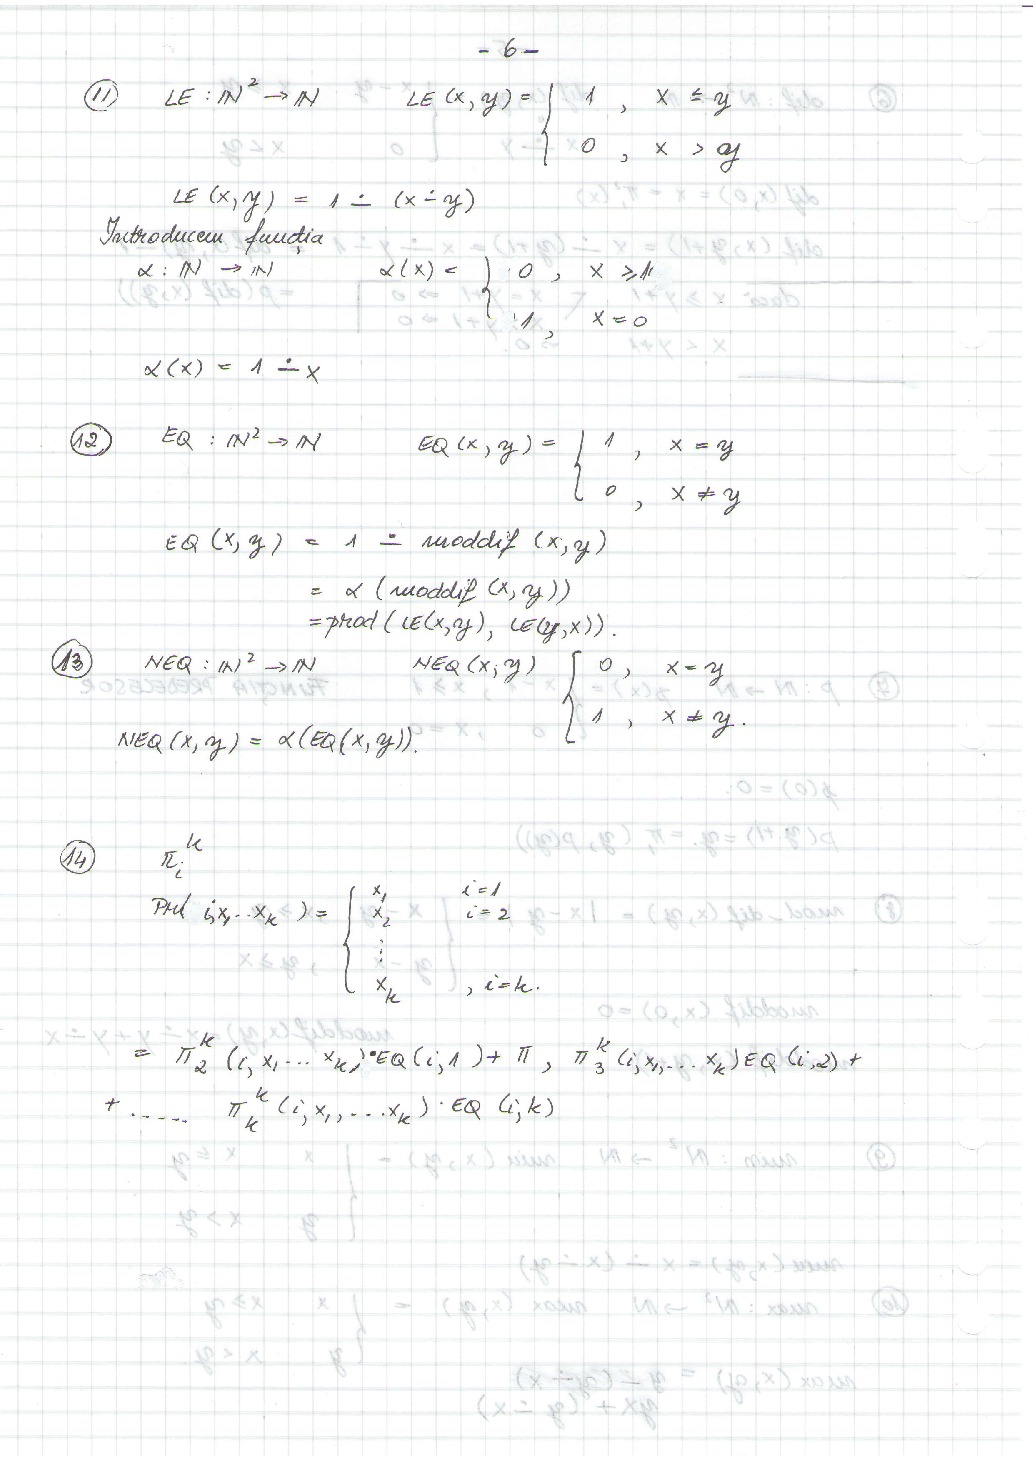 - 6 -
⑪ LE : ℕ² → ℕ LE (x, y) = { 1 , x ≤ y
0 , x > y
LE (x, y) = 1 ∸ (x ∸ y)
Introducem funcția
α : ℕ → ℕ α(x) = { 0 , x ≥ 1
1 , x = 0
α(x) = 1 ∸ x
⑫ EQ : ℕ² → ℕ EQ (x, y) = { 1 , x = y
0 , x ≠ y
EQ (x, y) = 1 ∸ moddif (x, y)
= α (moddif (x, y))
= prod ( LE(x, y), LE(y, x)).
⑬ NEQ : ℕ² → ℕ NEQ (x, y) { 0 , x = y
1 , x ≠ y.
NEQ (x, y) = α (EQ(x, y)).
⑭ πᵢᵏ
i, x₁ ... xₖ ) = { x₁ i = 1
x₂ i = 2
⋮
xₖ , i = k.
= π₂ᵏ (i, x₁ ... xₖ) · EQ (i, 1) + π , π₃ᵏ (i, x₁, ... xₖ) EQ (i, 2) +
+ ..... πₖᵏ (i, x₁, ... xₖ) · EQ (i, k)